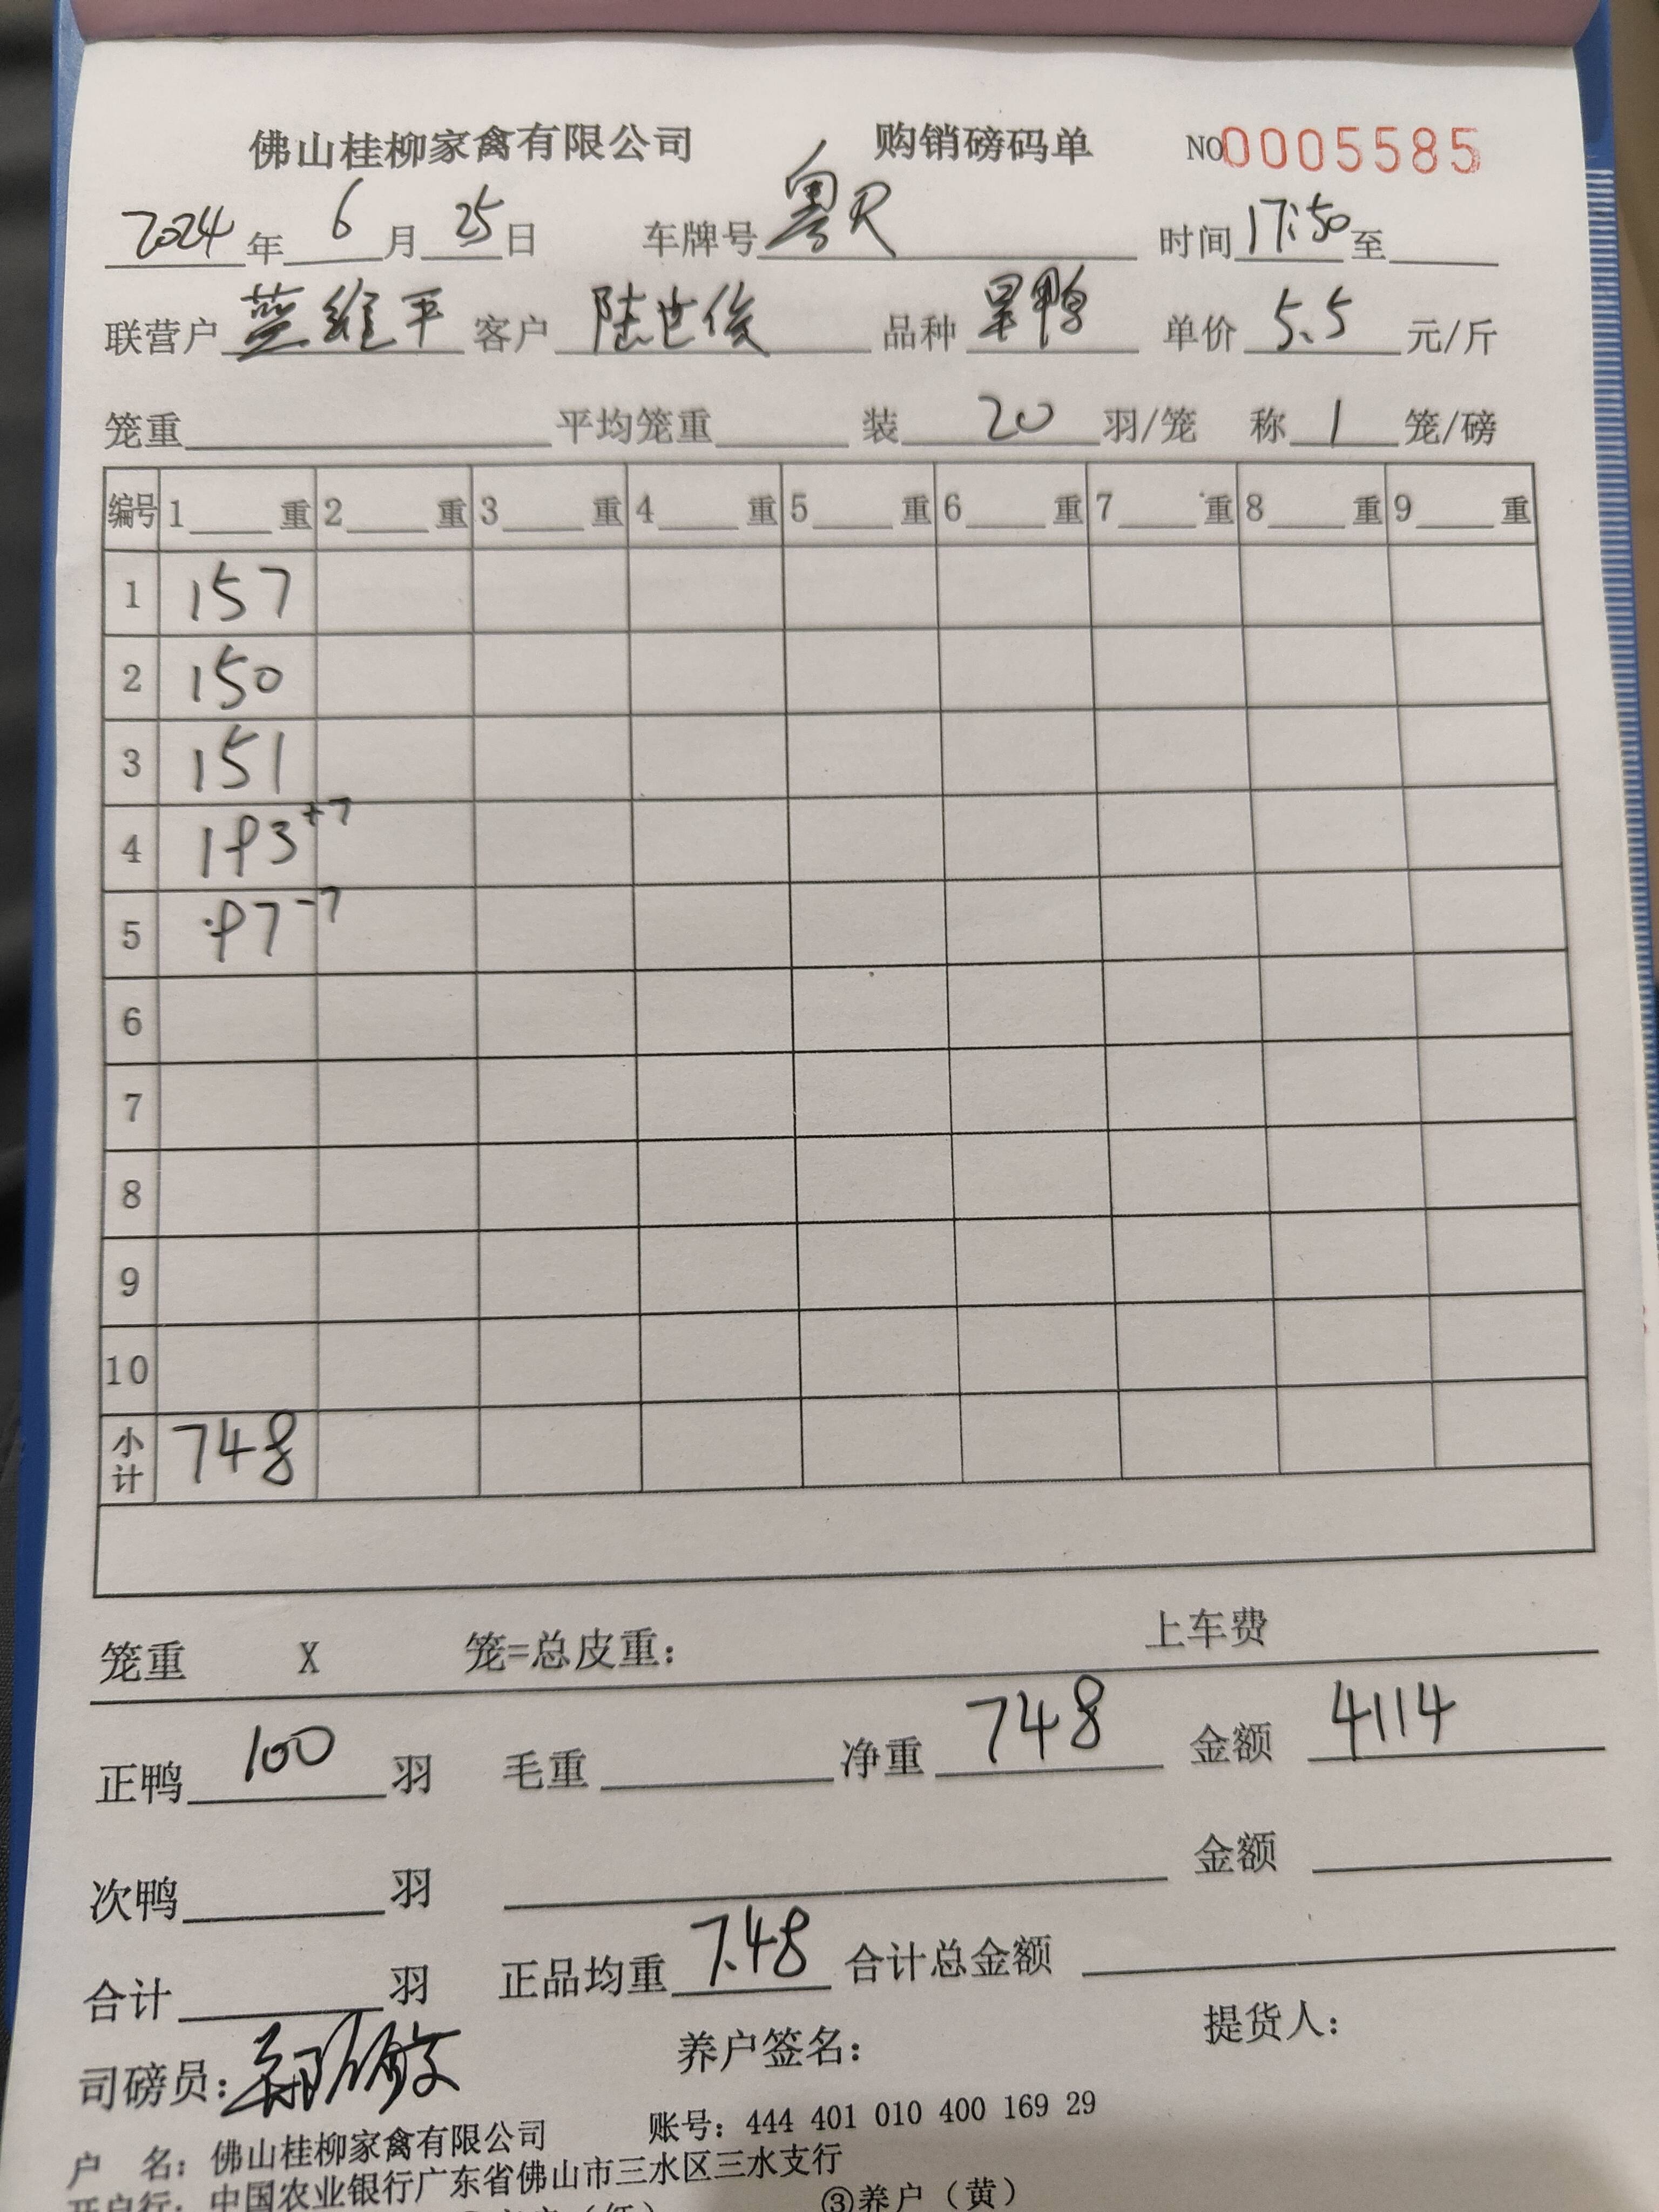 佛山桂柳家禽有限公司 购销磅码单 NO 0005585
2024年 6月 25日 车牌号 粤R 时间 17:50 至
联营户 蓝维平 客户 陆世俊 品种 旱鸭 单价 5.5 元/斤
笼重 平均笼重 装 20 羽/笼 称 1 笼/磅
编号 1 重 2 重 3 重 4 重 5 重 6 重 7 重 8 重 9 重
1 157
2 150
3 151
4 193+7
5 97-7
6
7
8
9
10
小计 748
笼重 X 笼=总皮重: 上车费
正鸭 100 羽 毛重 净重 748 金额 4114
次鸭 羽 金额
合计 羽 正品均重 7.48 合计总金额
司磅员: 养户签名: 提货人:
户 名: 佛山桂柳家禽有限公司 账号: 444 401 010 400 169 29
开户行: 中国农业银行广东省佛山市三水区三水支行
③养户（黄）